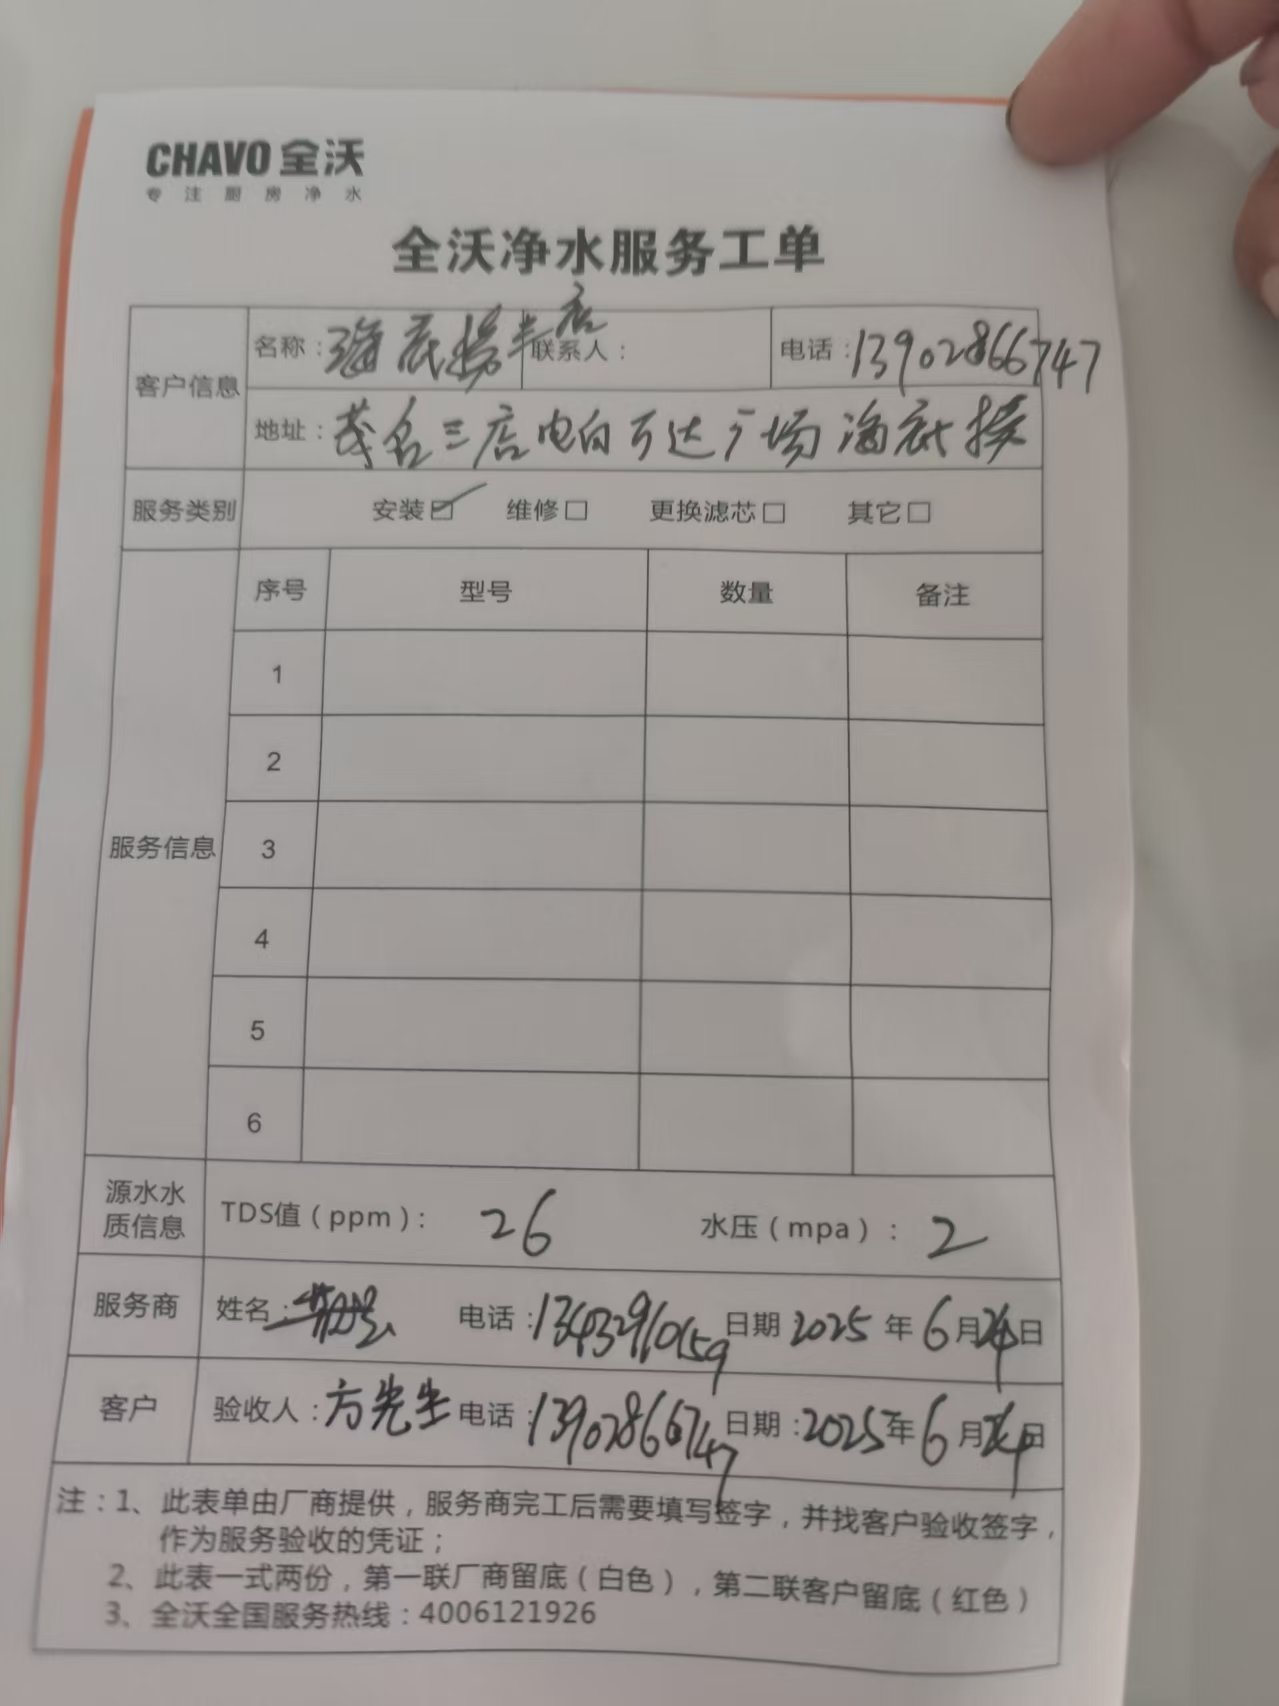 CHAVO 全沃
专注厨房净水
全沃净水服务工单
客户信息
名称：海底捞 店 联系人： 电话：13902866747
地址：茂名三店电白万达广场海底捞
服务类别 安装☑ 维修□ 更换滤芯□ 其它□
服务信息
序号 型号 数量 备注
1
2
3
4
5
6
源水水质信息 TDS值（ppm）： 26 水压（mpa）： 2
服务商 姓名： 电话：13432960159 日期 2025 年 6 月 24 日
客户 验收人：方先生 电话：13902866747 日期：2025 年 6 月 24 日
注：1、此表单由厂商提供，服务商完工后需要填写签字，并找客户验收签字，
作为服务验收的凭证；
2、此表一式两份，第一联厂商留底（白色），第二联客户留底（红色）
3、全沃全国服务热线：4006121926